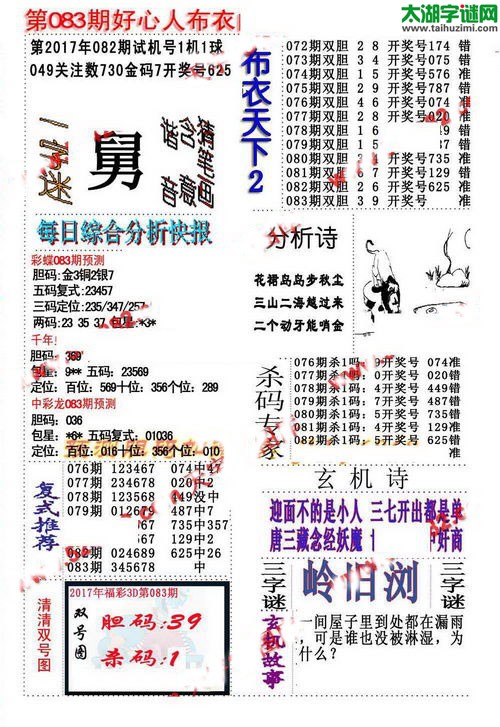 第083期好心人布衣
太湖字谜网
www.taihuzimi.com
第2017年082期试机号1机1球
049关注数730金码7开奖号625
舅
每日综合分析快报
彩蝶083期预测
胆码:金3铜2银7
五码复式:23457
三码定位:235/347/257
两码:23 35 37 包星:*3*
千年!
胆码:369
包星:9** 五码:23569
定位:百位:569十位:356个位:289
中彩龙083期预测
胆码:036
包星:*6* 五码复式:01036
定位:百位:016十位:356个位:010
复式推荐
076期 123467 074中47
077期 234678 020中2
078期 123568 449没中
079期 012679 487中
67 735中357
67 129中12
082期 024689 625中26
083期 345678 中
清清双号图
2017年福彩3D第083期
双号图
胆码:39
杀码:1
布衣天下2
072期双胆 2 8 开奖号174 错
073期双胆 3 9 开奖号775 错
074期双胆 1 5 开奖号576 准
075期双胆 2 9 开奖号786 错
076期双胆 4 6 开奖号074 准
077期双胆 2 8 开奖号020 准
078期双胆 1 6
079期双胆 1 5 错
080期双胆 3 4 开奖号735 准
081期双胆 6 7 开奖号129 错
082期双胆 2 6 开奖号625 准
083期双胆 3 9 开奖号 准
分析诗
花裙岛岛步秋尘
三山二海越过来
二个动牙能哨金
杀码专家
076期杀1吗:9开奖号 074准
077期杀1码:0开奖号 020错
078期杀1码: 449错
079期杀1码: 487错
080期杀1码:5开奖号 735错
081期杀1码:4开奖号 129准
082期杀1码:5开奖号 625错
玄机诗
迎面不的是小人 三七开出都是单
唐三藏念经妖魔 奸商
三字谜
岭旧浏
三字谜
玄机故事
一间屋子里到处都在漏雨
,可是谁也没被淋湿,为
什么?